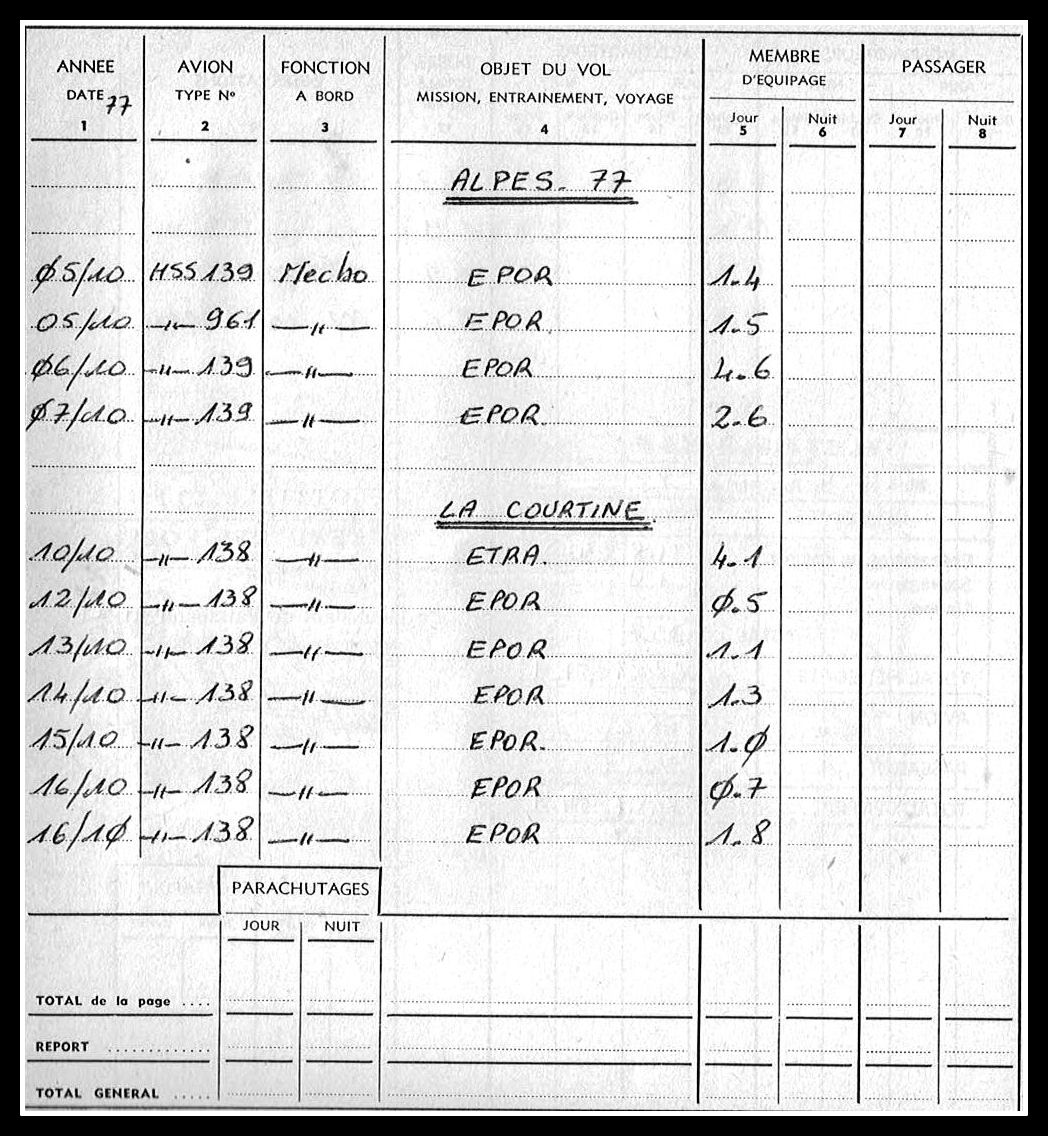 ANNEE AVION FONCTION OBJET DU VOL MEMBRE D'EQUIPAGE PASSAGER
DATE 77 TYPE Nº A BORD MISSION, ENTRAINEMENT, VOYAGE Jour Nuit Jour Nuit
1 2 3 4 5 6 7 8
ALPES. 77
Ø5/10 HSS 139 Mecbo EPOR 1.4
05/10 —"— 961 —"— EPOR. 1.5
Ø6/10 —"— 139 —"— EPOR 4.6
Ø7/10 —"— 139 —"— EPOR. 2.6
LA COURTINE
10/10 —"— 138 —"— ETRA. 4.1
12/10 —"— 138 —"— EPOR Ø.5
13/10 —"— 138 —"— EPOR 1.1
14/10 —"— 138 —"— EPOR 1.3
15/10 —"— 138 —"— EPOR. 1.Ø
16/10 —"— 138 —"— EPOR Ø.7
16/1Ø —"— 138 —"— EPOR 1.8
PARACHUTAGES
JOUR NUIT
TOTAL de la page ....
REPORT ............
TOTAL GENERAL .....